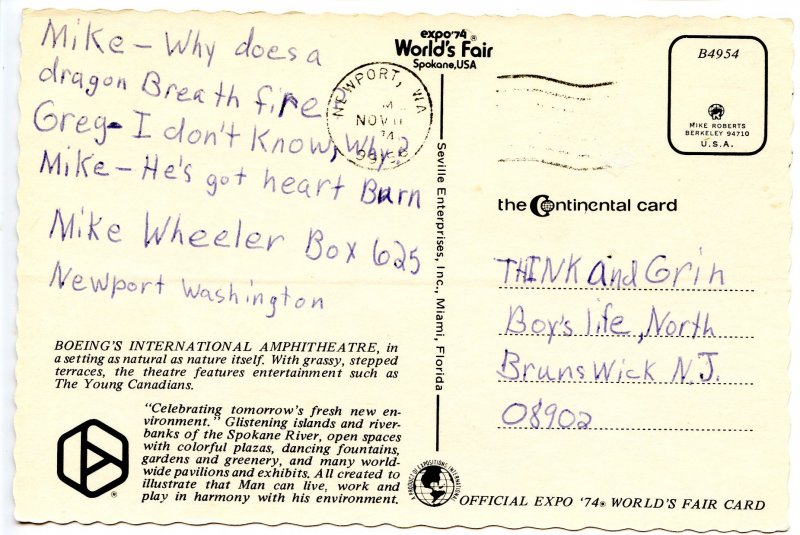 Mike - Why does a
dragon Breath fire
Greg - I don't know, Why?
Mike - He's got heart Burn
Mike Wheeler Box 625
Newport Washington
BOEING'S INTERNATIONAL AMPHITHEATRE, in
a setting as natural as nature itself. With grassy, stepped
terraces, the theatre features entertainment such as
The Young Canadians.
"Celebrating tomorrow's fresh new en-
vironment." Glistening islands and river-
banks of the Spokane River, open spaces
with colorful plazas, dancing fountains,
gardens and greenery, and many world-
wide pavilions and exhibits. All created to
illustrate that Man can live, work and
play in harmony with his environment.
®
expo'74®
World's Fair
Spokane, USA
NEWPORT, WA
M
NOV 11
Seville Enterprises, Inc., Miami, Florida
B4954
MIKE ROBERTS
BERKELEY 94710
U.S.A.
the Continental card
THINK and Grin
Boy's life, North
Brunswick N.J.
08902
OFFICIAL EXPO '74® WORLD'S FAIR CARD